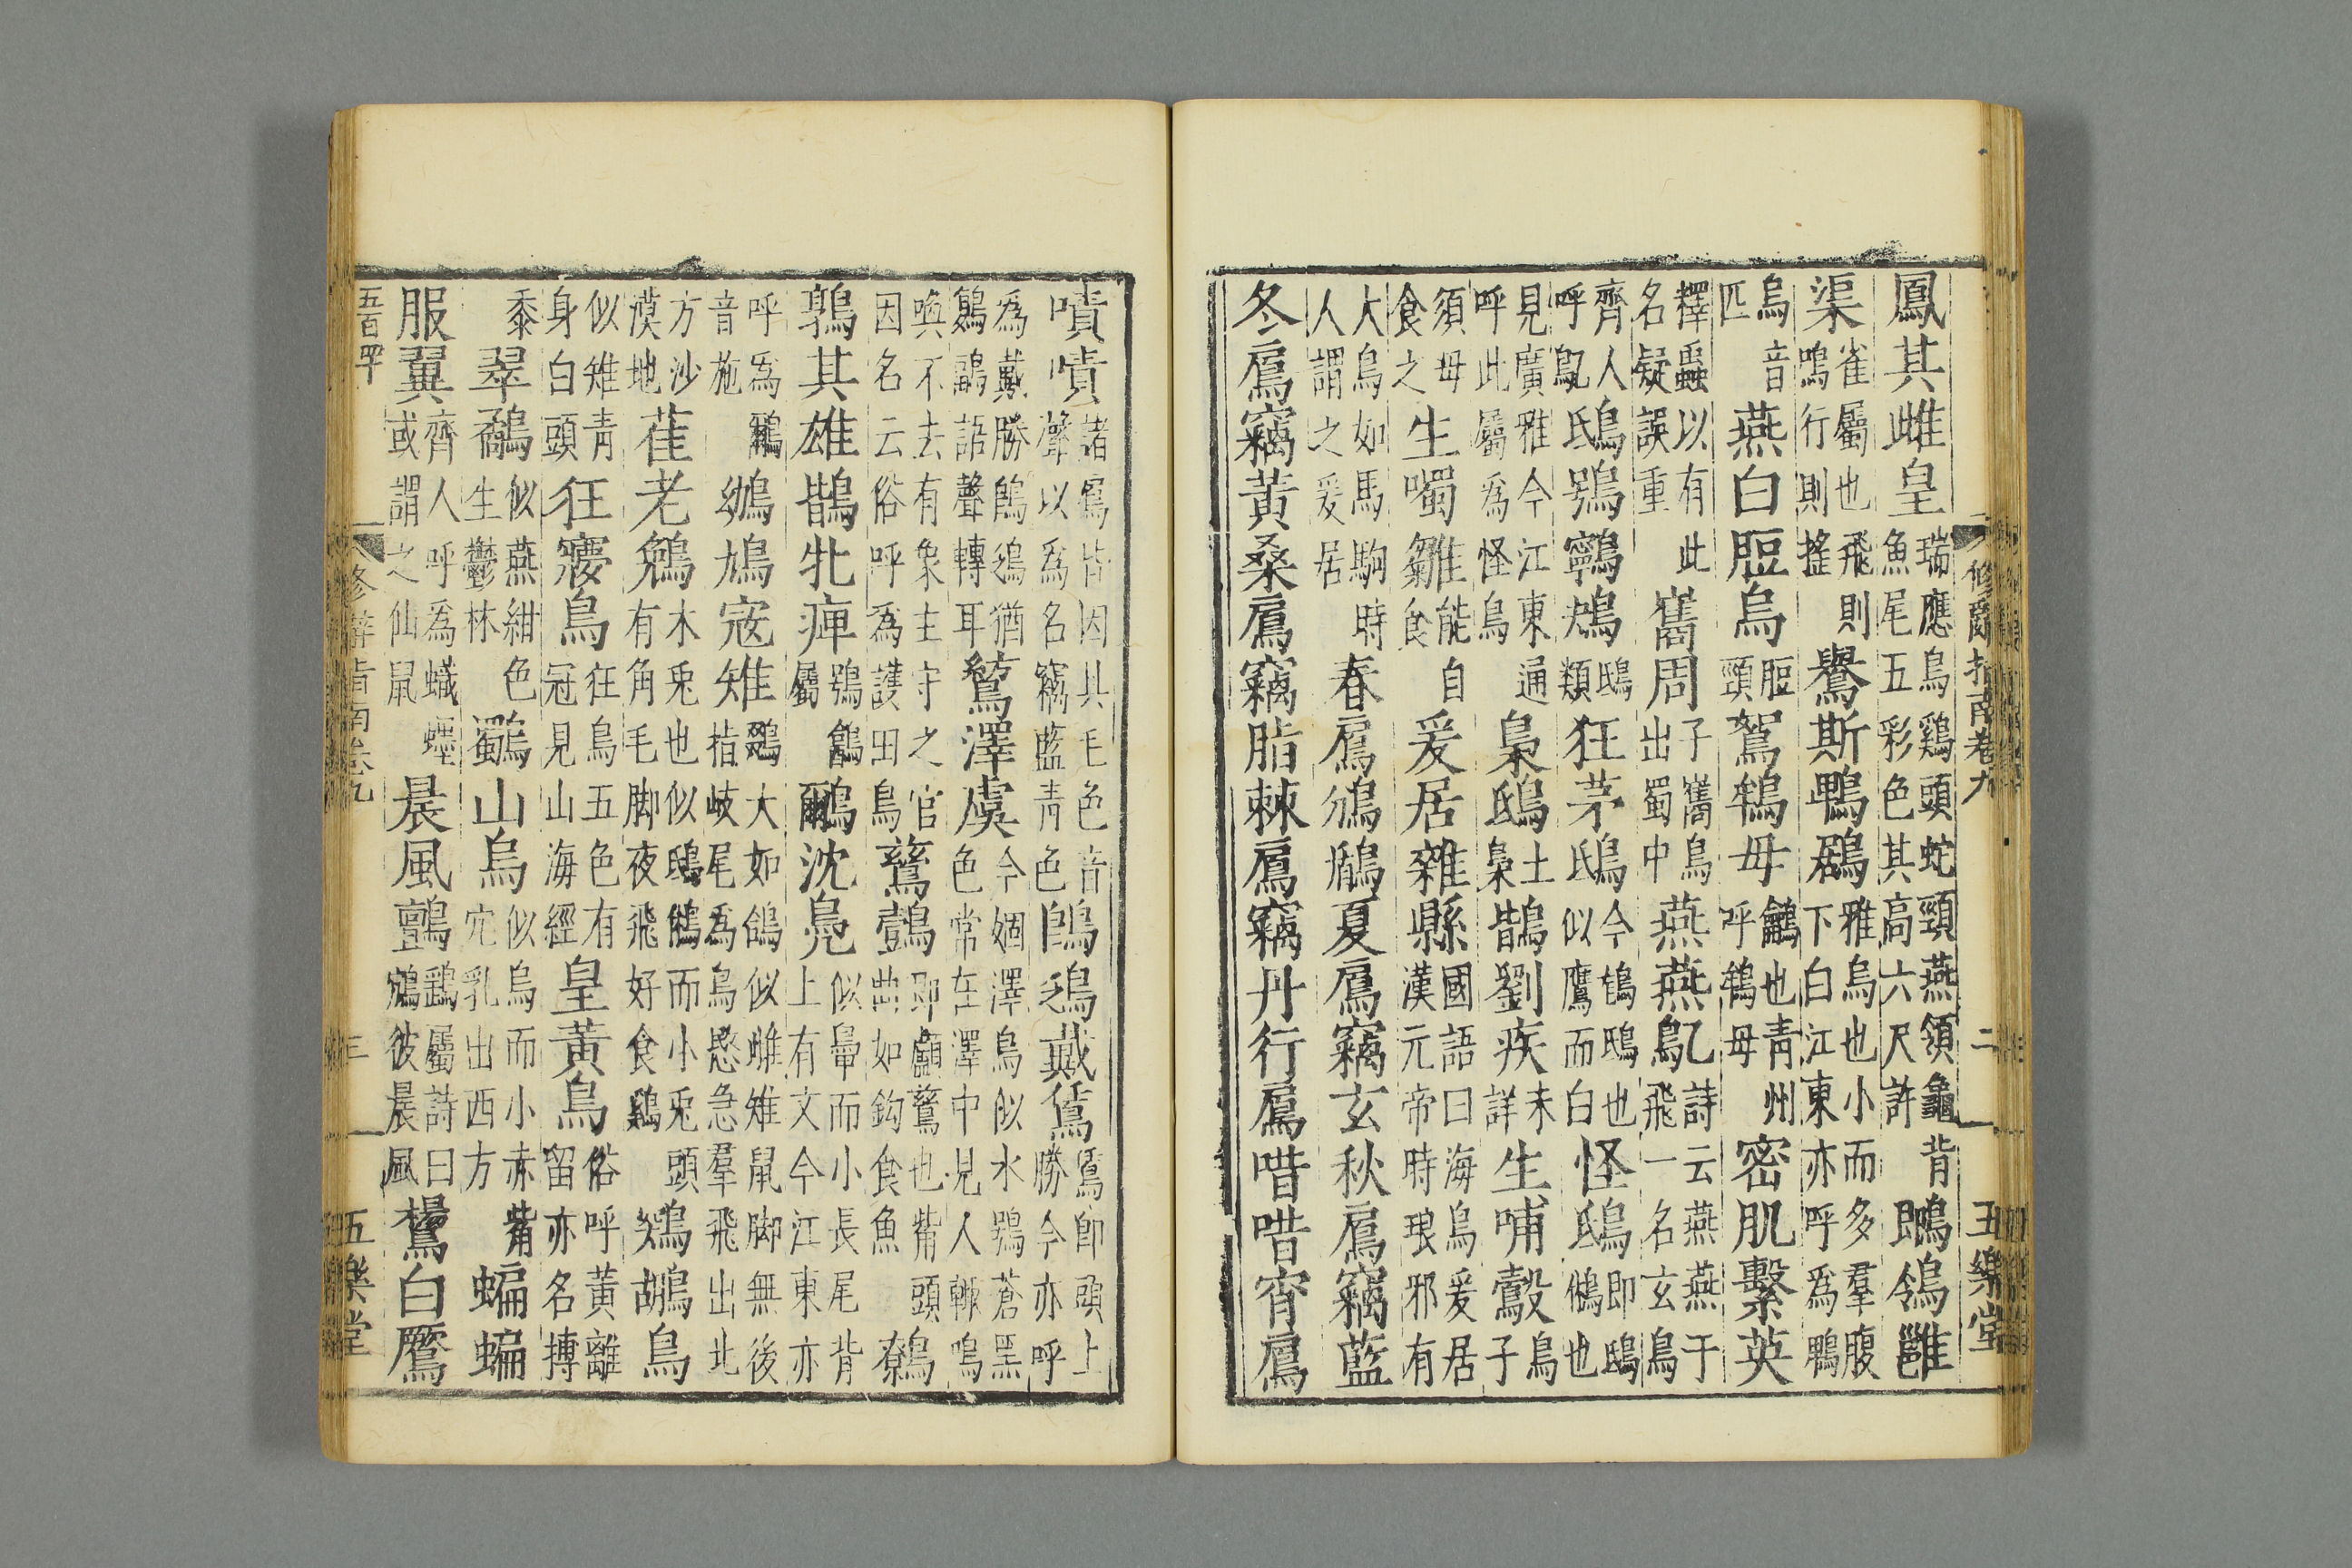 修爾指南卷九 二 五樂堂
鳳其雌皇瑞應鳥鷄頭蛇頸燕頷龜背魚尾五彩色其高六尺許䳭鴒雝
渠雀屬也飛則鳴行則搖鸒斯鵯鶋雅烏也小而多羣腹下白江東亦呼為鵯
烏音匹燕白脰烏脰頸鴽鴾母䳺也青州呼鴾母密肌繫英
釋蟲以有此名疑誤重巂周子巂鳥出蜀中燕燕鳦詩云燕燕于飛一名玄鳥
齊人呼鳦鴟鴞鸋鴂鴟類狂茅鴟今鵂鴟也似鷹而白怪鴟即鴟鵂也
見廣雅今江東通呼此屬為怪鳥梟鴟土梟鶛劉疾未詳生哺鷇鳥子
須母食之生噣雛能自食爰居雜縣國語曰海鳥爰居漢元帝時琅邪有
大鳥如馬駒時人謂之爰居春鳸鳻鶞夏鳸竊玄秋鳸竊藍
冬鳸竊黃桑鳸竊脂棘鳸竊丹行鳸唶唶宵鳸
嘖嘖諸鳸皆因其毛色音聲以為名竊藍青色鵖鴔戴鵀鵀即頭上勝今亦呼
為戴勝鵖鴔猶鶝鶔語聲轉耳鶭澤虞今婟澤鳥似水鴞蒼黑色常在澤中見人輒鳴
喚不去有象主守之官因名云俗呼為護田鳥鶿鷧即鸕鶿也觜頭曲如鉤食魚鷯
鶉其雄鶛牝痺鶉屬鸍沈鳧似鴨而小長尾背上有文今江東亦
呼為鸍音施鵽鳩寇雉鵽大如鴿似雌雉鼠脚無後指岐尾為鳥憨急羣飛出北
方沙漠地萑老鵵木兔也似鴟鵂而小兔頭有角毛脚夜飛好食鷄鶟鶘鳥
似雉青身白頭狂㝱鳥狂鳥五色有冠見山海經皇黃鳥俗呼黃離留亦名搏
黍翠鷸似燕紺色生鬱林鸀山烏似烏而小赤觜穴乳出西方蝙蝠
服翼齊人呼為蟙䘃或謂之仙鼠晨風鸇鷂屬詩曰鴥彼晨風鸉白鷹
五百四 指南卷九 三 五樂堂